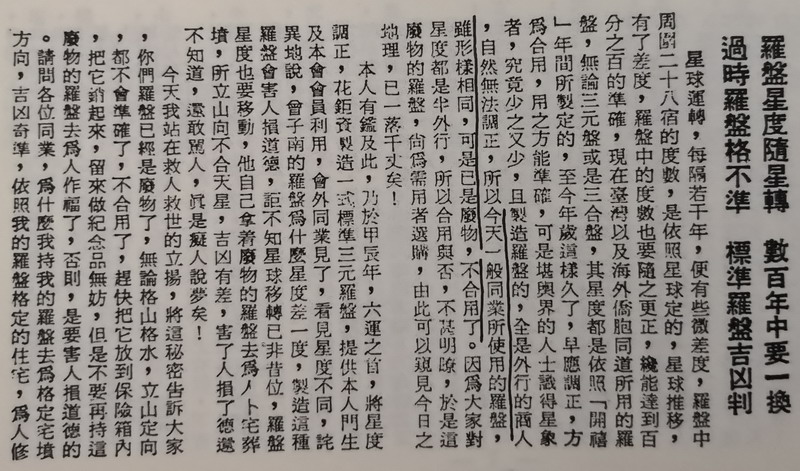 羅盤星度隨星轉　數百年中要一換
過時羅盤格不準　標準羅盤吉凶判
星球運轉，每隔若干年，便有些微差度，羅盤中
周圍二十八宿的度數，是依照星球定的，星球推移，
有了差度，羅盤中的度數也要隨之更正，纔能達到百
分之百的準確，現在臺灣以及海外僑胞同道所用的羅
盤，無論三元盤或是三合盤，其星度都是依照「開禧
」年間所製定的，至今年歲這樣久了，早應調正，方
爲合用，用之方能準確，可是堪輿界的人士識得星象
者，究竟少之又少，且製造羅盤的，全是外行的商人
，自然無法調正，所以今天一般同業所使用的羅盤，
雖形樣相同，可是已是廢物，不合用了。因爲大家對
星度都是半外行，所以合用與否，不甚明瞭，於是這
廢物的羅盤，尚爲需用者選購，由此可以窺見今日之
地理，已一落千丈矣！
本人有鑑及此，乃於甲辰年，六運之首，將星度
調正，花鉅資製造一式標準三元羅盤，提供本人門生
及本會會員利用，會外同業見了，看見星度不同，詫
異地說，曾子南的羅盤爲什麼星度差一度，製造這種
羅盤會害人損道德，詎不知星球移轉已非昔位，羅盤
星度也要移動，他自己拿着廢物的羅盤去爲人卜宅葬
墳，所立山向不合天星，吉凶有差，害了人損了德還
不知道，還敢罵人，眞是癡人說夢矣！
今天我站在救人救世的立揚，將這秘密告訴大家
，你們羅盤已經是廢物了，無論格山格水，立山定向
，都不會準確了，不合用了，趕快把它放到保險箱內
，把它銷起來，留來做紀念品無妨，但是不要再持這
廢物的羅盤去爲人作福了，否則，是要害人損道德的
。請問各位同業，爲什麼我持我的羅盤去爲格定宅墳
方向，吉凶奇準，依照我的羅盤格定的住宅，爲人修